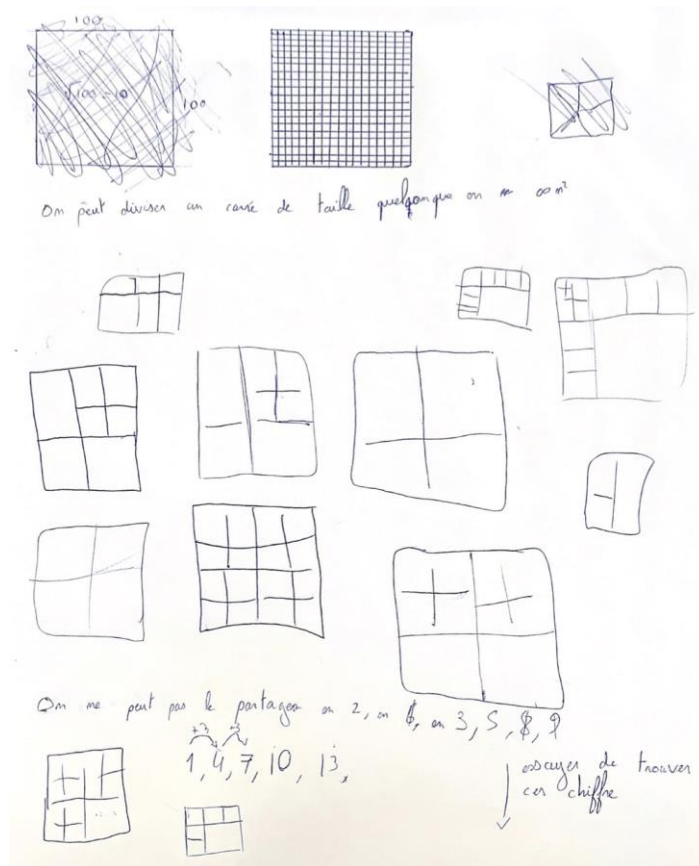 100
√100 = 10
100
On peut diviser un carré de taille quelqonque on m ∞ m²
On ne peut pas le partager en 2, en 6, en 3, 5, 8, 9
+3 +3
1, 4, 7, 10, 13,
essayer de trouver
ces chiffre